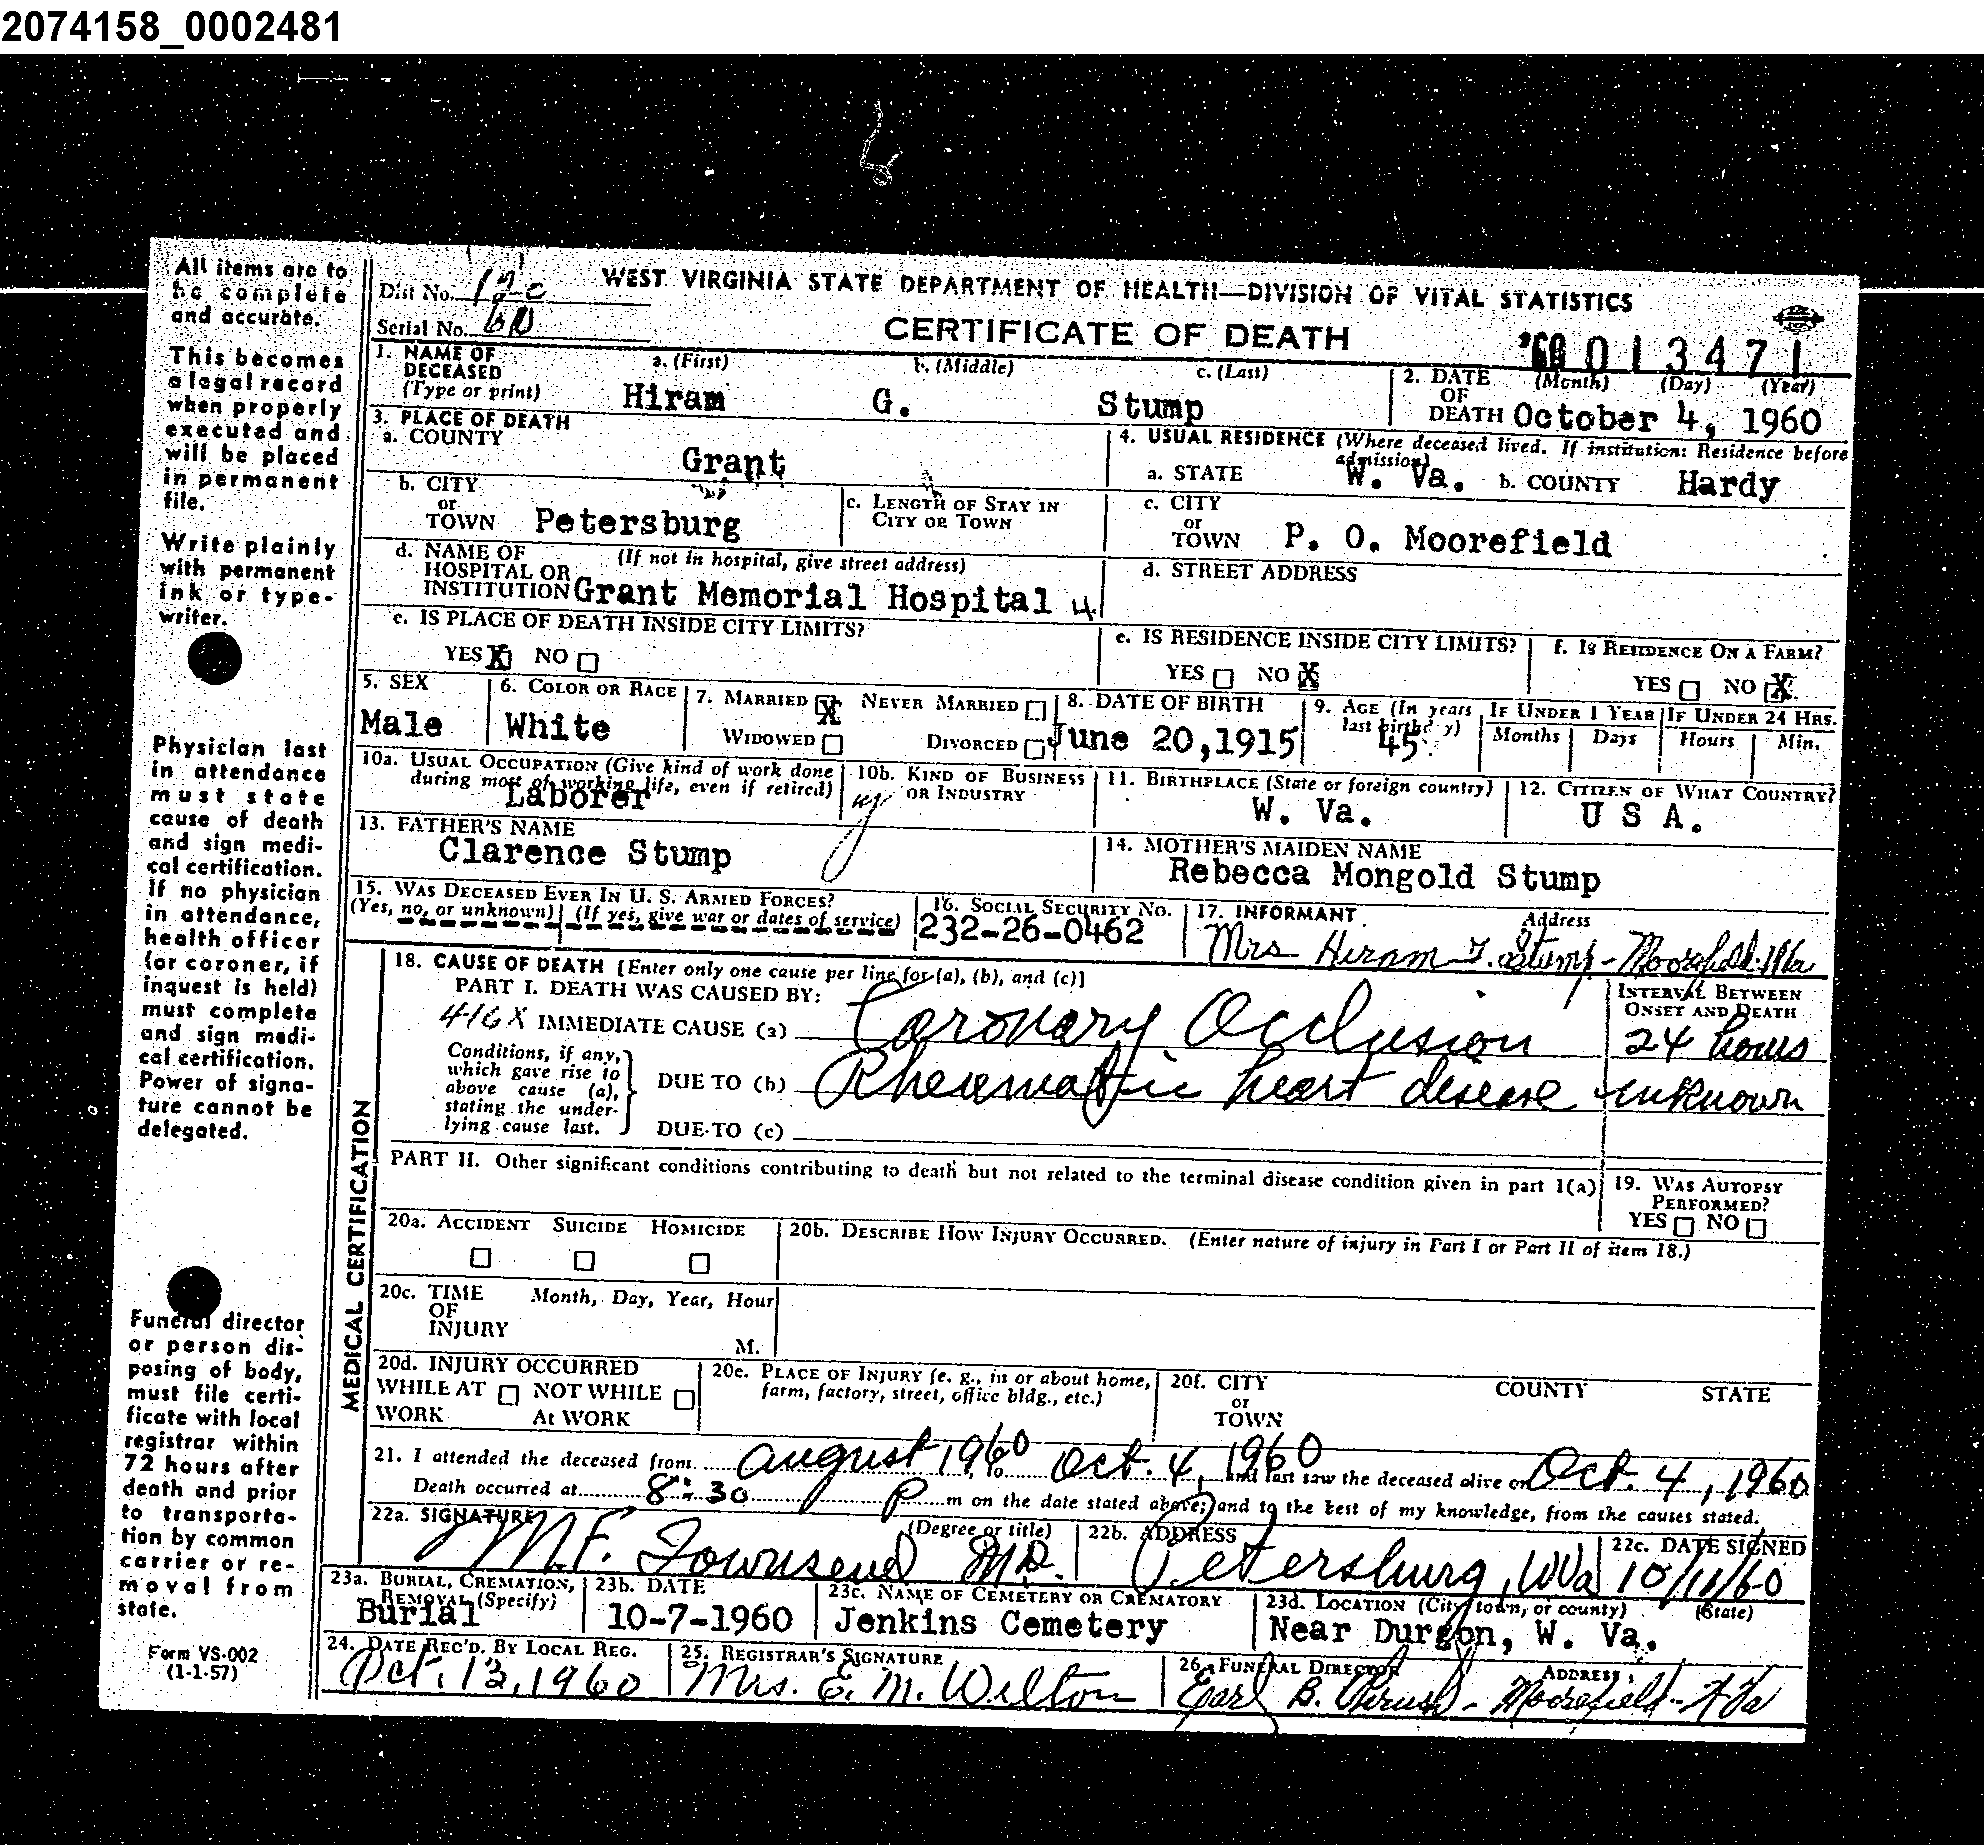 2074158_0002481
All items are to
be complete
and accurate.
This becomes
a legal record
when properly
executed and
will be placed
in permanent
file.
Write plainly
with permanent
ink or type-
writer.
Physician last
in attendance
must state
cause of death
and sign medi-
cal certification.
If no physician
in attendance,
health officer
(or coroner, if
inquest is held)
must complete
and sign medi-
cal certification.
Power of signa-
ture cannot be
delegated.
Funeral director
or person dis-
posing of body,
must file certi-
ficate with local
registrar within
72 hours after
death and prior
to transporta-
tion by common
carrier or re-
moval from
state.
Form VS-002
(1-1-57)
Dist No.
Serial No. 60
WEST VIRGINIA STATE DEPARTMENT OF HEALTH—DIVISION OF VITAL STATISTICS
CERTIFICATE OF DEATH
'60 013471
1. NAME OF DECEASED (Type or print) a. (First) b. (Middle) c. (Last)
Hiram G. Stump
2. DATE OF DEATH (Month) (Day) (Year)
October 4, 1960
3. PLACE OF DEATH
a. COUNTY
Grant
4. USUAL RESIDENCE (Where deceased lived. If institution: Residence before admission)
a. STATE W. Va. b. COUNTY Hardy
b. CITY or TOWN Petersburg
c. LENGTH OF STAY IN CITY OR TOWN
c. CITY or TOWN P. O. Moorefield
d. NAME OF HOSPITAL OR INSTITUTION (If not in hospital, give street address)
Grant Memorial Hospital 4
d. STREET ADDRESS
e. IS PLACE OF DEATH INSIDE CITY LIMITS?
YES X NO
e. IS RESIDENCE INSIDE CITY LIMITS?
YES NO X
f. IS RESIDENCE ON A FARM?
YES NO X
5. SEX
Male
6. COLOR OR RACE
White
7. MARRIED X NEVER MARRIED
WIDOWED DIVORCED
8. DATE OF BIRTH
June 20,1915
9. AGE (In years last birthday)
45
IF UNDER 1 YEAR
Months Days
IF UNDER 24 HRS.
Hours Min.
10a. USUAL OCCUPATION (Give kind of work done
during most of working life, even if retired)
Laborer
10b. KIND OF BUSINESS OR INDUSTRY
11. BIRTHPLACE (State or foreign country)
W. Va.
12. CITIZEN OF WHAT COUNTRY?
U S A.
13. FATHER'S NAME
Clarence Stump
14. MOTHER'S MAIDEN NAME
Rebecca Mongold Stump
15. WAS DECEASED EVER IN U. S. ARMED FORCES?
(Yes, no, or unknown) (If yes, give war or dates of service)
16. SOCIAL SECURITY No.
232-26-0462
17. INFORMANT Address
Mrs Hiram G. Stump - Moorefield. WVa
MEDICAL CERTIFICATION
18. CAUSE OF DEATH [Enter only one cause per line for (a), (b), and (c)]
PART I. DEATH WAS CAUSED BY:
INTERVAL BETWEEN ONSET AND DEATH
416X IMMEDIATE CAUSE (a) Coronary Occlusion 24 hours
Conditions, if any,
which gave rise to
above cause (a),
stating the under-
lying cause last.
DUE TO (b) Rheumatic heart disease unknown
DUE TO (c)
PART II. Other significant conditions contributing to death but not related to the terminal disease condition given in part 1(a)
19. WAS AUTOPSY PERFORMED?
YES NO
20a. ACCIDENT SUICIDE HOMICIDE
20b. DESCRIBE HOW INJURY OCCURRED. (Enter nature of injury in Part I or Part II of item 18.)
20c. TIME OF INJURY Month, Day, Year, Hour
M.
20d. INJURY OCCURRED
WHILE AT WORK NOT WHILE At WORK
20e. PLACE OF INJURY (e. g., in or about home,
farm, factory, street, office bldg., etc.)
20f. CITY or TOWN COUNTY STATE
21. I attended the deceased from August 1960 to Oct. 4, 1960 and last saw the deceased alive on Oct. 4, 1960
Death occurred at 8:30 P m on the date stated above; and to the best of my knowledge, from the causes stated.
22a. SIGNATURE (Degree or title)
M.F. Townsend MD.
22b. ADDRESS
Petersburg, WVa
22c. DATE SIGNED
10/11/60
23a. BURIAL, CREMATION, REMOVAL (Specify)
Burial
23b. DATE
10-7-1960
23c. NAME OF CEMETERY OR CREMATORY
Jenkins Cemetery
23d. LOCATION (City, town, or county) (State)
Near Durgon, W. Va.
24. DATE REC'D. BY LOCAL REG.
Oct. 13, 1960
25. REGISTRAR'S SIGNATURE
Mrs. E. M. Welton
26. FUNERAL DIRECTOR ADDRESS
Earl B. Thrush - Moorefield - WVa